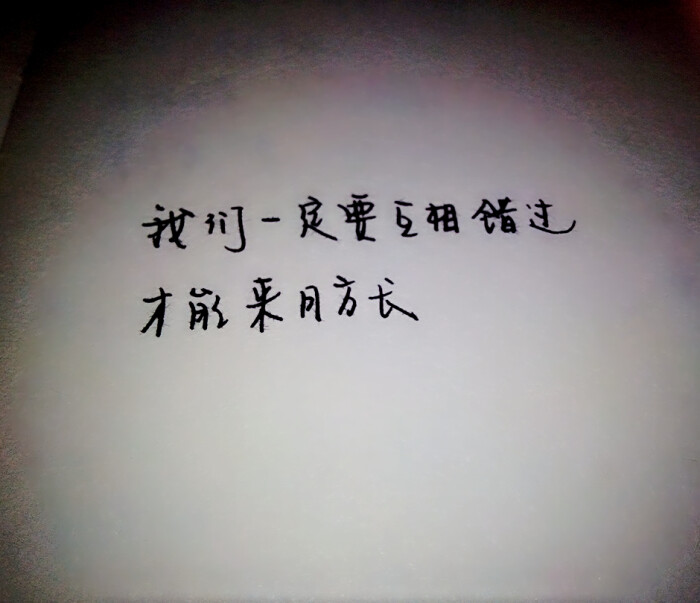 我们一定要互相错过
才能来日方长